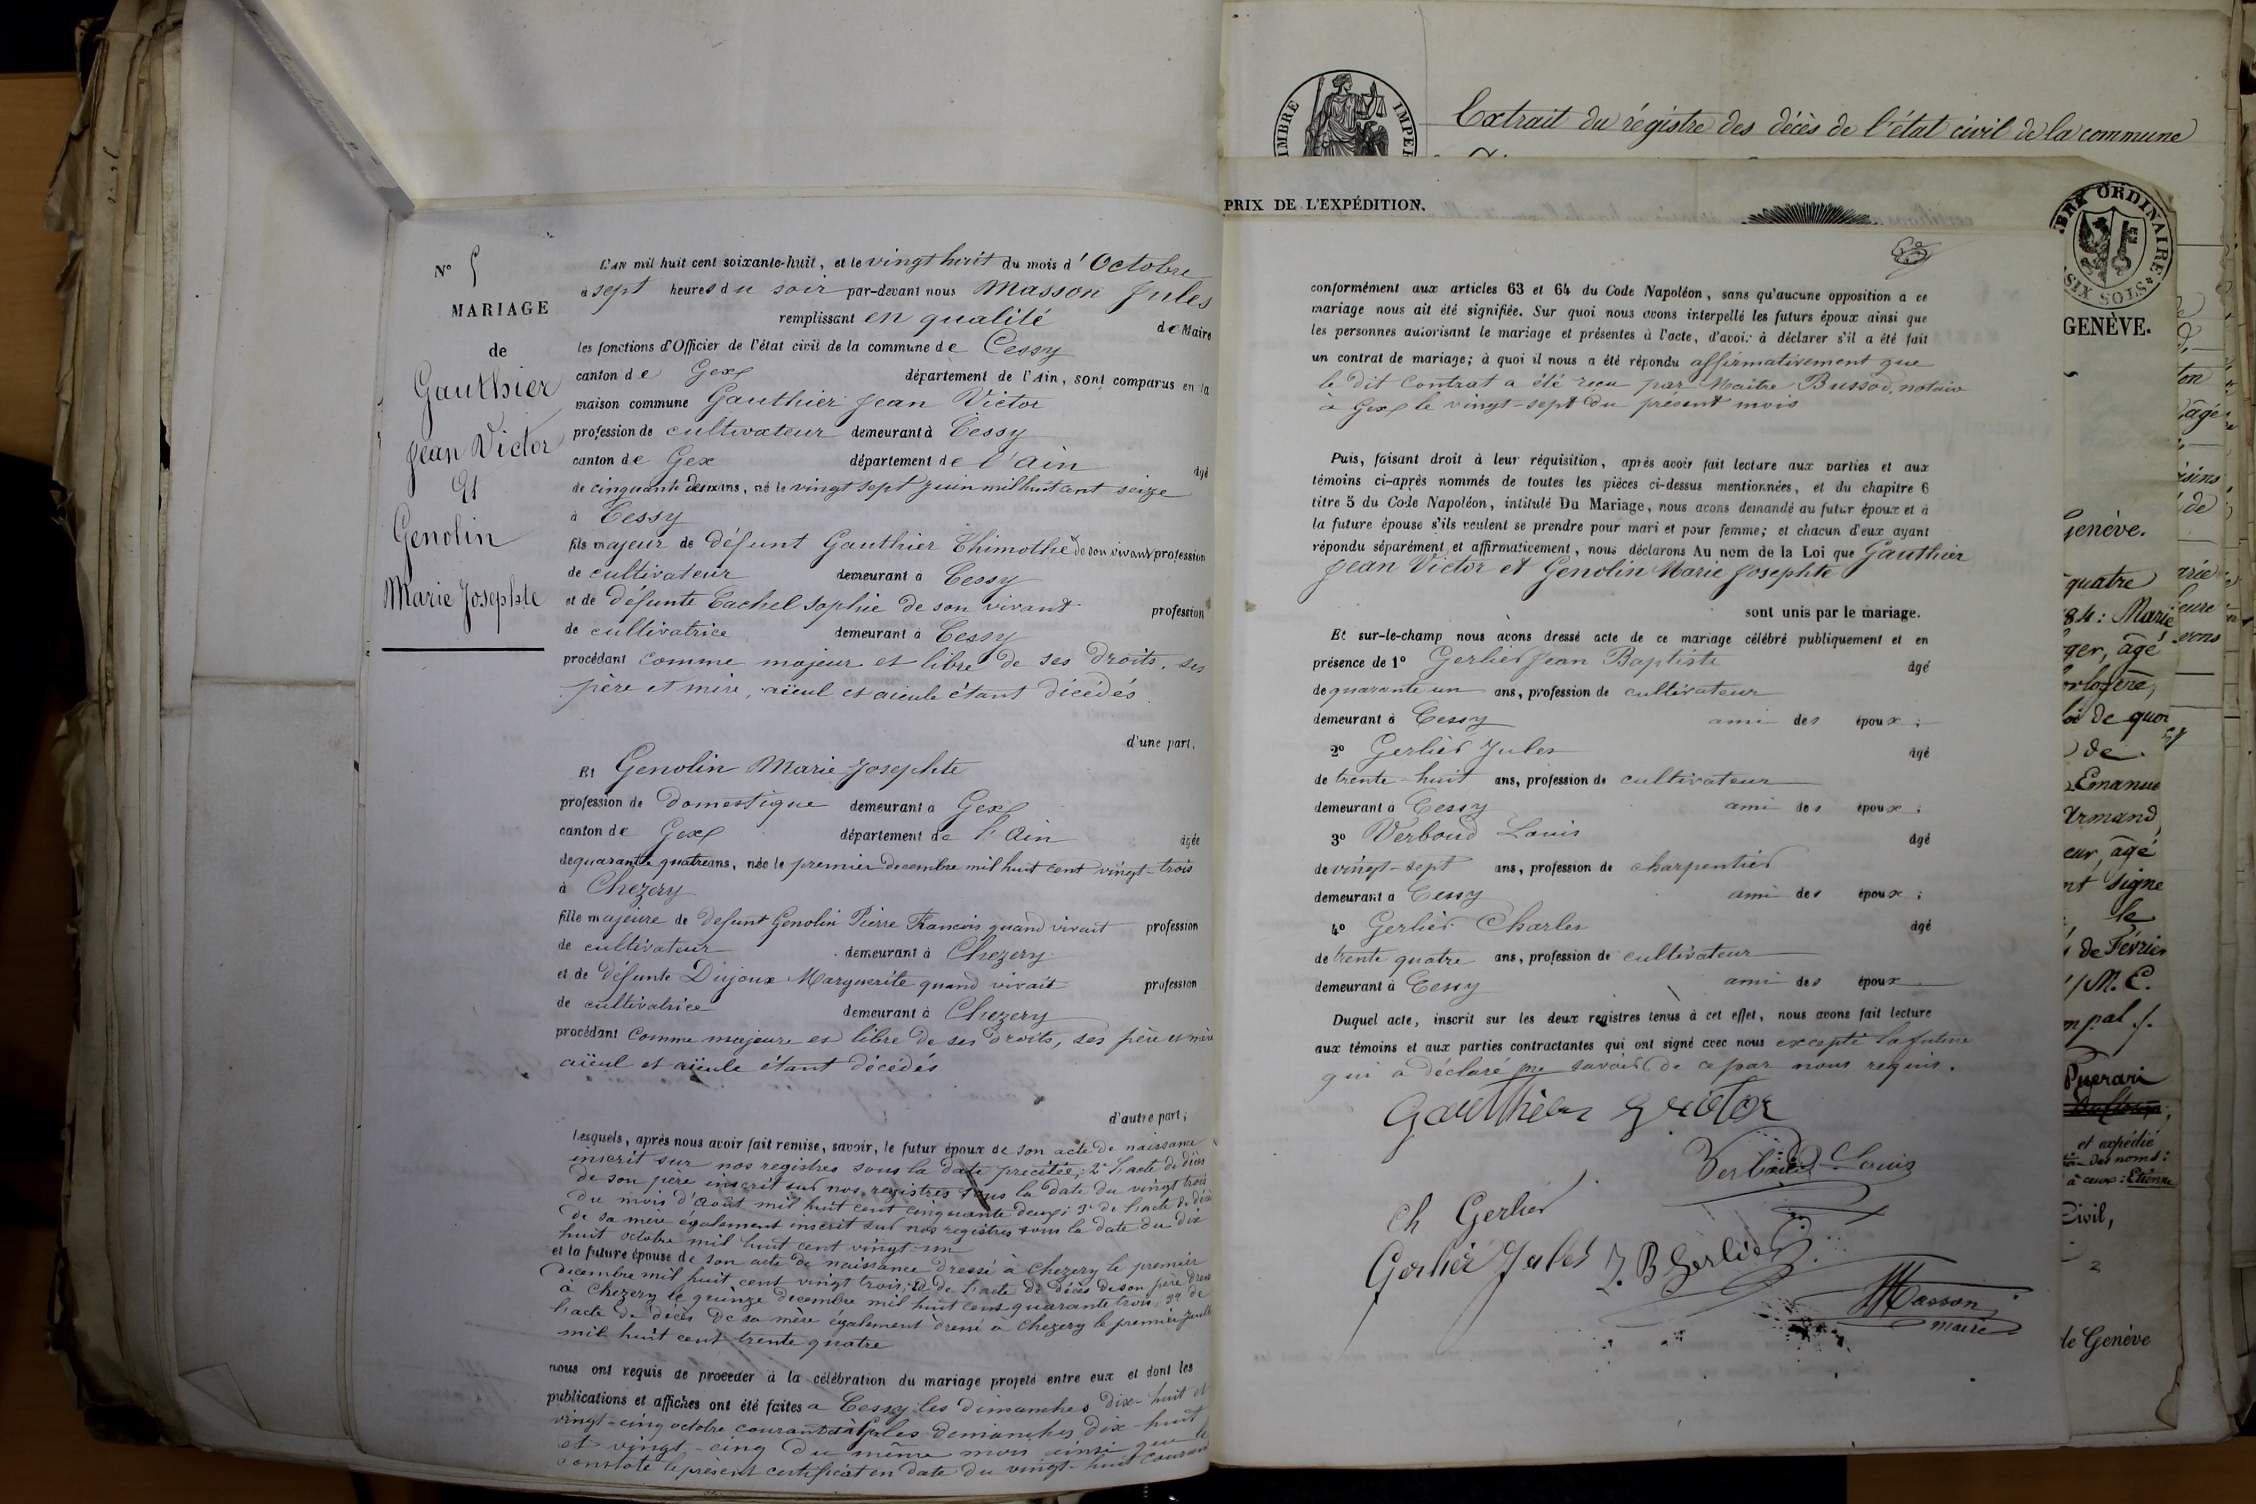 N° 5
MARIAGE
de
Gauthier
Jean Victor
Et
Genolin
Marie Josephte
L'AN mil huit cent soixante-huit, et le vingt huit du mois d'Octobre
à sept heures du soir par-devant nous Masson Jules
remplissant en qualité de Maire
les fonctions d'Officier de l'état civil de la commune de Cessy
canton de Gex département de l'Ain, sont comparus en la
maison commune Gauthier Jean Victor
profession de cultivateur demeurant à Cessy
canton de Gex département de l'Ain âgé
de cinquante deux ans, né le vingt sept Juin mil huit cent seize
à Cessy
fils majeur de défunt Gauthier Thimothé de son vivant profession
de cultivateur demeurant à Cessy
et de défunte Cachel Sophie de son vivant profession
de cultivatrice demeurant à Cessy
procédant comme majeur et libre de ses droits, ses
père et mère, aïeul et aïeule étant décédés
d'une part,
Et Genolin Marie Josephte
profession de domestique demeurant à Gex
canton de Gex département de l'Ain âgée
de quarante quatre ans, née le premier decembre mil huit cent vingt-trois
à Chezery
fille majeure de defunt Genolin Pierre Francois quand vivait profession
de cultivateur demeurant à Chezery
et de défunte Dujoux Marguerite quand vivait profession
de cultivatrice demeurant à Chezery
procédant comme majeure et libre de ses droits, ses père et mère
aïeul et aïeule étant décédés
d'autre part;
Lesquels, après nous avoir fait remise, savoir, le futur époux de son acte de naissance
inscrit sur nos registres sous la date précitée; 2° l'acte de décès
de son père inscrit sur nos registres sous la date du vingt trois
du mois d'Août mil huit cent cinquante deux; 3° de l'acte de décès
de sa mère également inscrit sur nos registres sous la date du dix
huit octobre mil huit cent vingt-un
et la future épouse de son acte de naissance dressé à Chezery le premier
decembre mil huit cent vingt trois; 2° de l'acte de décès de son père dressé
à Chezery le quinze decembre mil huit cent quarante trois; 3° de
l'acte de décès de sa mère également dressé à Chezery le premier Juillet
mil huit cent trente quatre
nous ont requis de procéder à la célébration du mariage projeté entre eux et dont les
publications et affiches ont été faites a Cessy les dimanches dix-huit et
vingt-cinq octobre courant et à Gex les dimanches dix-huit
et vingt-cinq du même mois ainsi que le
constate le présent certificat en date du vingt-huit courant
TIMBRE IMPER
Extrait du régistre des décès de l'état civil de la commune
PRIX DE L'EXPÉDITION.
conformément aux articles 63 et 64 du Code Napoléon, sans qu'aucune opposition a ce
mariage nous ait été signifiée. Sur quoi nous avons interpellé les futurs époux ainsi que
les personnes autorisant le mariage et présentes à l'acte, d'avoir à déclarer s'il a été fait
un contrat de mariage; à quoi il nous a été répondu affirmativement que
le dit Contrat a été reçu par Maître Bussod, notaire
à Gex le vingt-sept du présent mois
Puis, faisant droit à leur réquisition, après avoir fait lecture aux parties et aux
témoins ci-après nommés de toutes les pièces ci-dessus mentionnées, et du chapitre 6
titre 5 du Code Napoléon, intitulé Du Mariage, nous avons demandé au futur époux et à
la future épouse s'ils veulent se prendre pour mari et pour femme; et chacun d'eux ayant
répondu séparément et affirmativement, nous déclarons Au nom de la Loi que Gauthier
Jean Victor et Genolin Marie Josephte
sont unis par le mariage.
Et sur-le-champ nous avons dressé acte de ce mariage célébré publiquement et en
présence de 1° Gerlier Jean Baptiste âgé
de quarante un ans, profession de cultivateur
demeurant à Cessy ami des époux;
2° Gerlier Jules âgé
de trente-huit ans, profession de cultivateur
demeurant à Cessy ami des époux;
3° Verboud Louis âgé
de vingt-sept ans, profession de charpentier
demeurant à Cessy ami des époux;
4° Gerlier Charles âgé
de trente quatre ans, profession de cultivateur
demeurant à Cessy ami des époux
Duquel acte, inscrit sur les deux registres tenus à cet effet, nous avons fait lecture
aux témoins et aux parties contractantes qui ont signé avec nous excepté la future
qui a déclaré ne savoir de ce par nous requis.
Gauthier Victor
Verboud Louis
Ch Gerlier
Gerlier Jules J. B Gerlier
Masson
maire
TIMBRE ORDINAIRE
SIX SOLS
GENÈVE.
Genève.
quatre
84: Marie
âgé
de quoi
de
Emanue
Armand,
eur, âgé
nt signé
le
de Février
M. E.
Puerari
et expédié
ses noms:
à ceux: Etienne
Civil,
2
de Genève